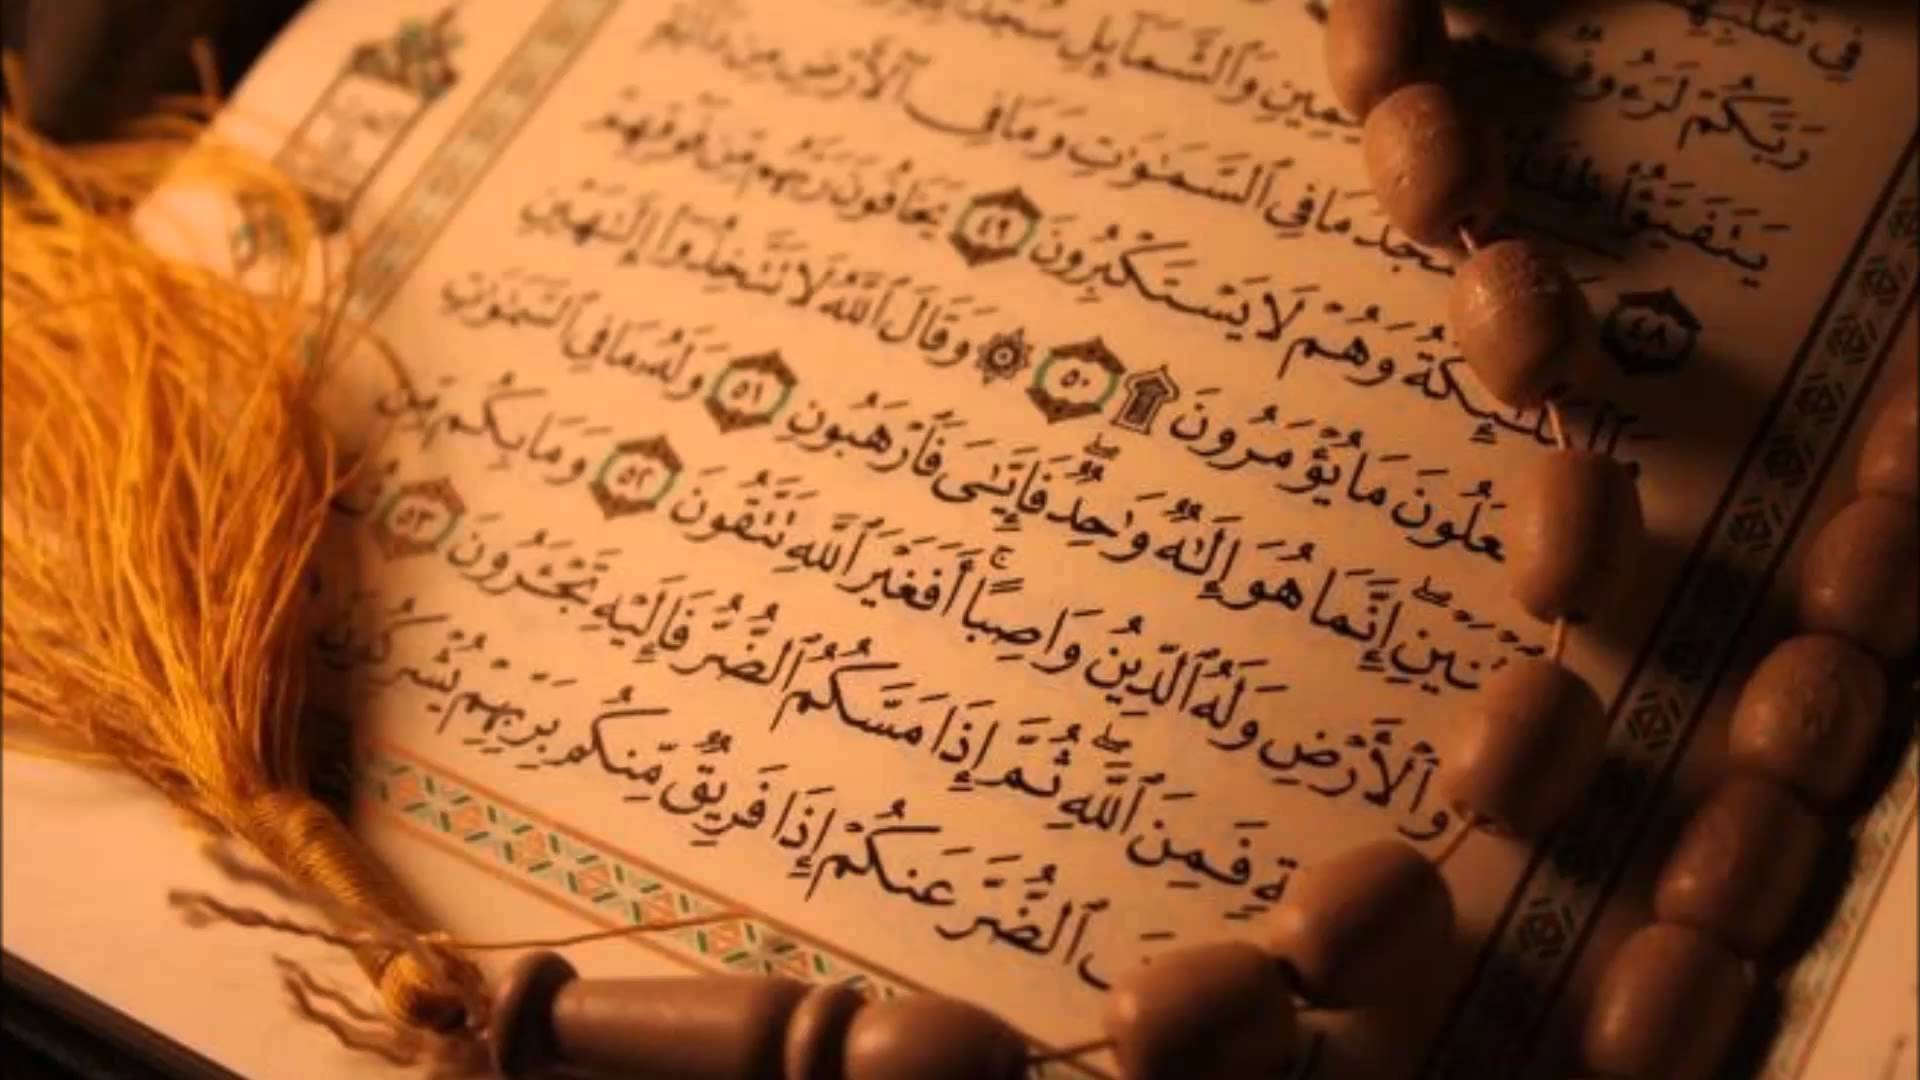 فِي تَقَلُّبِهِمْ
رَبَّكُمْ لَرَءُوفٌ
يَتَفَيَّؤُا۟ ظِلَٰلُهُ ٱلْيَمِينِ وَٱلشَّمَآئِلِ سُجَّدًا
٤٨ يَسْجُدُ مَا فِي ٱلسَّمَٰوَٰتِ وَمَا فِي ٱلْأَرْضِ مِن دَآبَّةٍ
وَٱلْمَلَٰٓئِكَةُ وَهُمْ لَا يَسْتَكْبِرُونَ ٤٩ يَخَافُونَ رَبَّهُم مِّن فَوْقِهِمْ
يَفْعَلُونَ مَا يُؤْمَرُونَ ۩ ٥٠ ۞ وَقَالَ ٱللَّهُ لَا تَتَّخِذُوٓا۟ إِلَٰهَيْنِ
ٱثْنَيْنِ ۖ إِنَّمَا هُوَ إِلَٰهٌ وَٰحِدٌ ۖ فَإِيَّٰيَ فَٱرْهَبُونِ ٥١ وَلَهُۥ مَا فِي ٱلسَّمَٰوَٰتِ
وَٱلْأَرْضِ وَلَهُ ٱلدِّينُ وَاصِبًا ۚ أَفَغَيْرَ ٱللَّهِ تَتَّقُونَ ٥٢ وَمَا بِكُم مِّن
فَمِنَ ٱللَّهِ ۖ ثُمَّ إِذَا مَسَّكُمُ ٱلضُّرُّ فَإِلَيْهِ تَجْـَٔرُونَ ٥٣
ٱلضُّرَّ عَنكُمْ إِذَا فَرِيقٌ مِّنكُم بِرَبِّهِمْ يُشْرِكُونَ